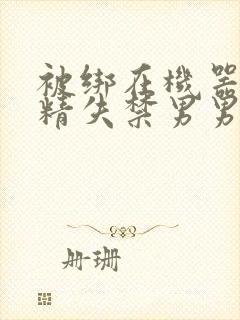 被绑在機器
精失禁男男
册珊